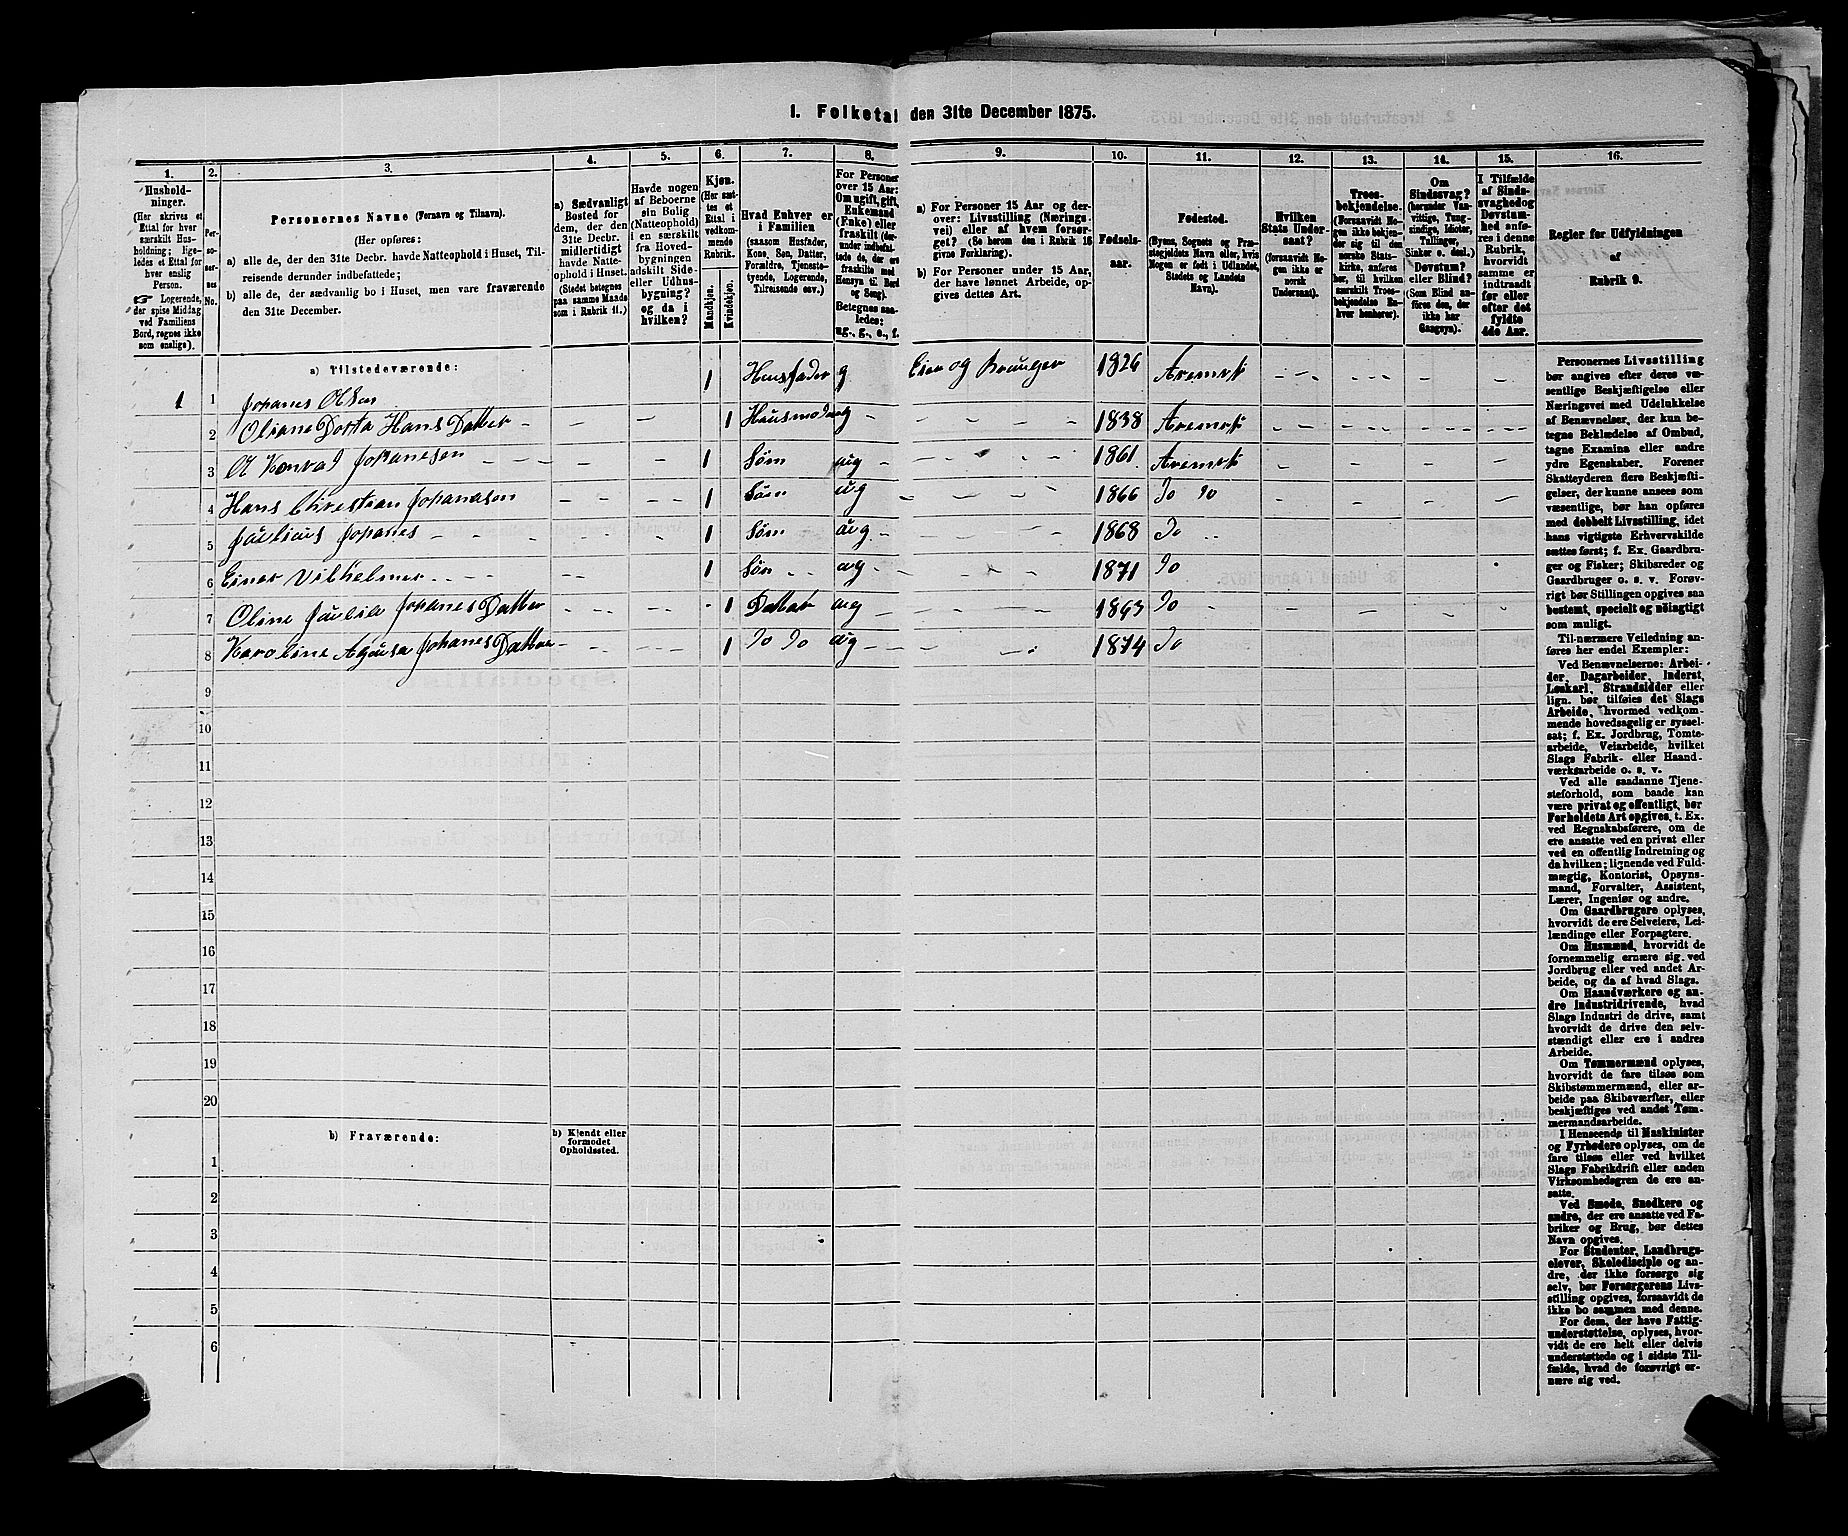 1. Folketal den 31te December 1875.
1. 2. 3. 4. 5. 6. 7. 8. 9. 10. 11. 12. 13. 14. 15. 16.
Husholdninger.
(Her skrives et
Ettal for hver
særskilt Husholdning;
ligeledes et Ettal for
hver enslig
Person.
☞ Logerende,
der spise Middag
ved Familiens
Bord, regnes ikke
som enslige).
Personernes No.
Personernes Navne (Fornavn og Tilnavn).
(Her opføres:
a) alle de, der den 31te Decbr. havde Natteophold i Huset, Tilreisende derunder indbefattede;
b) alle de, der sædvanlig bo i Huset, men vare fraværende
den 31te December.
a) Sædvanligt
Bosted for
dem, der den
31te Decbr.
midlertidigt
havde Natteophold i Huset.
(Stedet betegnes
paa samme Maade
som i Rubrik 11.)
Havde nogen
af Beboerne
sin Bolig
(Natteophold)
i en særskilt
fra Hovedbygningen
adskilt Side-
eller Udhusbygning?
og da i
hvilken?
Kjøn.
(Her sættes et
Ettal i
vedkommende
Rubrik.
Mandkjøn.
Kvindekjøn.
Hvad Enhver er
i Familien
(saasom Husfader,
Kone, Søn, Datter,
Forældre, Tjenestetyende, Logerende,
Tilreisende osv.)
For Personer
over 15 Aar:
Om ugift, gift,
Enkemand
(Enke) eller
fraskilt (derunder indbefattede, der ere
fraskilte med
Hensyn til Bord
og Seng).
Betegnes saaledes:
ug., g., e., f.
a) For Personer 15 Aar og derover: Livsstilling (Næringsvei) eller af hvem forsørget? (Se herom den i Rubrik 16
givne Forklaring).
b) For Personer under 15 Aar,
der have lønnet Arbeide, opgives dettes Art.
Fødselsaar.
Fødested.
(Byens, Sognets og Præstegjeldets Navn eller, hvis
Nogen er født i Udlandet,
Stedets og Landets
Navn).
Hvilken
Stats Undersaat?
(forsaavidt Nogen ikke er
norsk
Undersaat).
Troesbekjendelse.
(Forsaavidt Nogen ikke bekjender sig til den
norske Statskirke, anføres
her, til hvilken
særskilt Troesbekjendelse Enhver henhører).
Om
Sindssvag?
(herunder Vanvittige, Tungsindige, Idioter,
Tullinger,
Sinker o. desl.)
Døvstum?
eller Blind?
(Som Blind anføres den, der
ikke har
Gangsyn).
I Tilfælde
af Sindssvaghed og
Døvstumhed anføres i denne
Rubrik,
hvorvidt
samme er
indtraadt
før eller
efter det
fyldte
4de Aar.
Regler for Udfyldningen
af
Rubrik 9.
a) Tilstedeværende:
1 1 Johanes Olsen 1 Huusfader g Eier og Bruuger 1826 Aremrk
2 Oliane Dorta Hans Datter 1 Huusmoder g 1838 Aremrk
3 Ol Konrad Johanesen 1 Søm ug 1861 Aremrk
4 Hans Christian Johanesen 1 Søm ug 1866 Do Do
5 Julius Johanes 1 Søm ug 1868 Do
6 Einer Vilhelmer 1 Søn ug 1871 Do
7 Oline Julie Johanes Datter 1 Datter ug Do
8 Karoline Agusa Johanes Datter 1 Do Do ug 1874 Do
9
10
11
12
13
14
15
16
17
18
19
20
b) Fraværende:
b) Kjendt eller
formodet
Opholdssted.
1
2
3
4
5
6
Personernes Livsstilling
bør angives efter deres væsentlige Beskjæftigelse eller
Næringsvei med Udelukkelse
af Benævnelser, der kun betegne Beklædelse af Ombud,
tagne Examina eller andre
ydre Egenskaber. Forener
Skatteyderen flere Beskjæftigelser, der kunne ansees som
væsentlige, bør han opføres
med dobbelt Livsstilling, idet
hans vigtigste Erhvervskilde
sættes først; f. Ex. Gaardbruger og Fisker; Skibsreder og
Gaardbruger o. s. v. Forøvrigt bør Stillingen opgives saa
bestemt, specielt og nøiagtigt
som muligt.
Til nærmere Veiledning anføres her endel Exempler:
Ved Benævnelserne: Arbeider, Dagarbeider, Inderst,
Løskarl, Strandsidder eller
lign. bør tilføies det Slags
Arbeide, hvormed vedkommende hovedsagelig er sysselsat; f. Ex. Jordbrug, Tomtearbeide, Veiarbeide, hvilket
Slags Fabrik- eller Haandværksarbeide o. s. v.
Ved alle saadanne Tjenesteforhold, som baade kan
være privat og offentligt, bør
Forholdets Art opgives, t. Ex.
ved Regnskabsførere, om de
ere ansatte ved en privat eller
ved en offentlig Indretning og
da hvilken; lignende ved Fuldmægtig, Kontorist, Opsynsmand, Forvalter, Assistent,
Lærer, Ingeniør og andre.
Om Gaardbrugere oplyses,
hvorvidt de ere Selveiere, Leilændinge eller Forpagtere.
Om Husmænd, hvorvidt de
fornemmelig ernære sig ved
Jordbrug eller ved andet Arbeide, og da af hvad Slags.
Om Haandværkere og andre Industridrivende, hvad
Slags Industri de drive, samt
hvorvidt de drive den selvstændigt eller ere i andres
Arbeide.
Om Tømmermænd oplyses,
hvorvidt de fare tilsøs som
Skibstømmermænd, eller arbeide paa Skibsværfter, eller
beskjæftiges ved andet Tømmermandsarbeide.
I Henseende til Maskinister
og Fyrbødere oplyses, om de
fare tilsøs eller ved hvilket
Slags Fabrikdrift eller anden
Virksomhedsgren de ere ansatte.
Ved Smede, Snedkere og
andre, der ere ansatte ved Fabriker og Brug, bør dettes
Navn opgives.
For Studenter, Landbrugselever, Skoledisciple og andre, der ikke forsørge sig
selv, bør Forsørgerens Livsstilling opgives, forsaavidt de
ikke bo sammen med denne.
For dem, der have Fattigunderstøttelse, oplyses, hvorvidt de ere helt eller delvis
understøttede og i sidste Tilfælde, hvad de forøvrigt ernære sig ved.